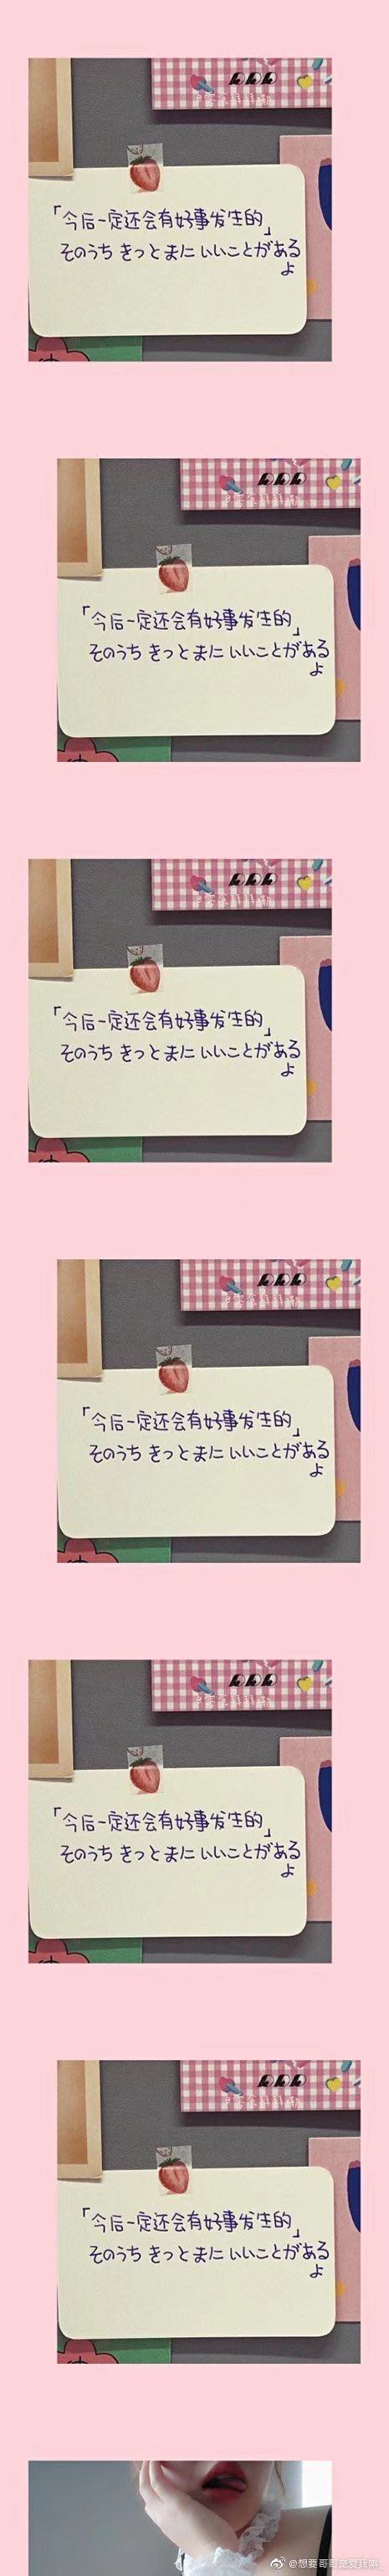 「今后一定还会有好事发生的」
そのうち きっと まに いいことがある
よ
「今后一定还会有好事发生的」
そのうち きっと まに いいことがある
よ
「今后一定还会有好事发生的」
そのうち きっと まに いいことがある
よ
「今后一定还会有好事发生的」
そのうち きっと まに いいことがある
よ
「今后一定还会有好事发生的」
そのうち きっと まに いいことがある
よ
「今后一定还会有好事发生的」
そのうち きっと まに いいことがある
よ